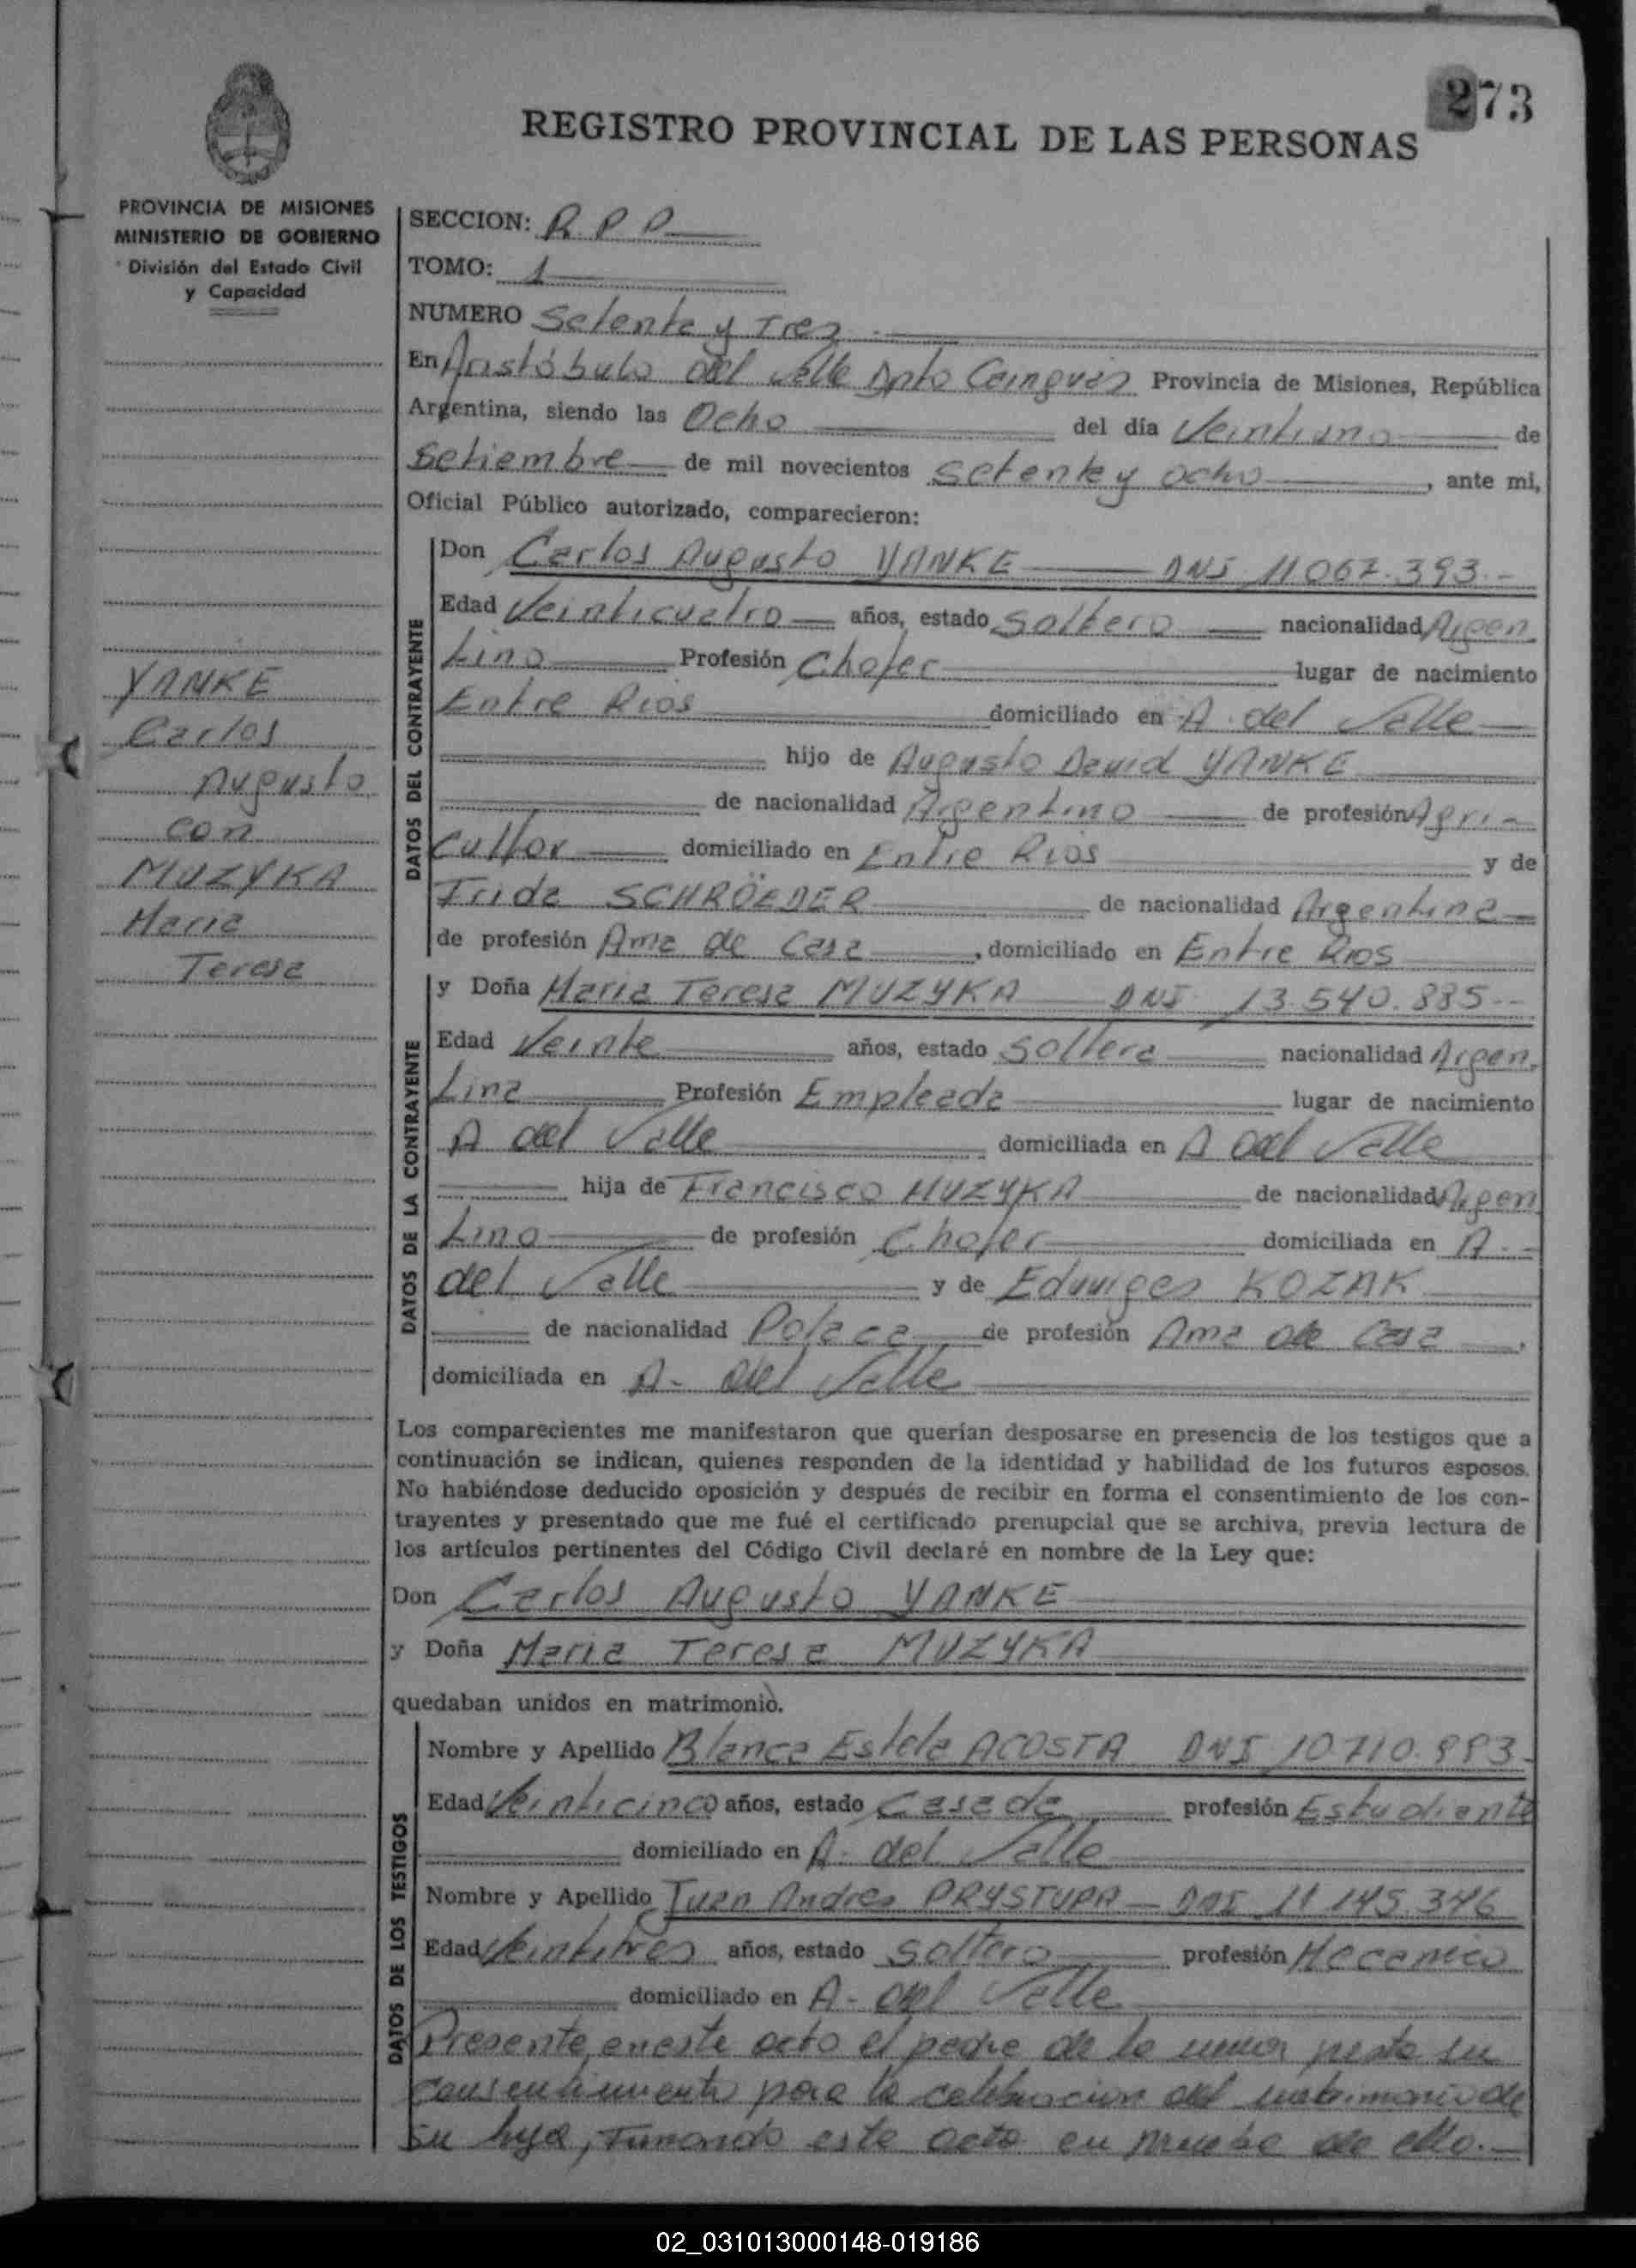 273
REGISTRO PROVINCIAL DE LAS PERSONAS
PROVINCIA DE MISIONES
MINISTERIO DE GOBIERNO
División del Estado Civil
y Capacidad
YANKE
Carlos
Augusto
con
MUZYKA
Maria
Teresa
SECCION: R. P. P
TOMO: 1
NUMERO Setenta y Tres
En Aristóbulo del Valle Dpto Cainguás Provincia de Misiones, República
Argentina, siendo las Ocho del día Veintiuno de
Setiembre de mil novecientos setenta y ocho, ante mi,
Oficial Público autorizado, comparecieron:
DATOS DEL CONTRAYENTE
Don Carlos Augusto YANKE DNI 11 067.393.-
Edad Veinticuatro años, estado Soltero nacionalidad Argen
tino Profesión Chofer lugar de nacimiento
Entre Rios domiciliado en A. del Valle
hijo de Augusto David YANKE
de nacionalidad Argentino de profesión Agri-
cultor domiciliado en Entre Rios y de
Frida SCHRÖEDER de nacionalidad Argentina
de profesión Ama de Casa, domiciliado en Entre Rios
DATOS DE LA CONTRAYENTE
y Doña Maria Teresa MUZYKA DNI 13.540.885.-
Edad Veinte años, estado Soltera nacionalidad Argen.
tina Profesión Empleada lugar de nacimiento
A del Valle domiciliada en A del Valle
hija de Francisco MUZYKA de nacionalidad Argen
tino de profesión Chofer domiciliada en A.-
del Valle y de Eduviges KOZAK
de nacionalidad Polaca de profesión Ama de Casa,
domiciliada en A. del Valle
Los comparecientes me manifestaron que querían desposarse en presencia de los testigos que a
continuación se indican, quienes responden de la identidad y habilidad de los futuros esposos.
No habiéndose deducido oposición y después de recibir en forma el consentimiento de los con-
trayentes y presentado que me fué el certificado prenupcial que se archiva, previa lectura de
los artículos pertinentes del Código Civil declaré en nombre de la Ley que:
Don Carlos Augusto YANKE
y Doña Maria Teresa MUZYKA
quedaban unidos en matrimonio.
DATOS DE LOS TESTIGOS
Nombre y Apellido Blanca Estela ACOSTA DNI 10 710.993.
Edad Veinticinco años, estado Casada profesión Estudiante
domiciliado en A. del Valle
Nombre y Apellido Juan Andres PRYSTUPA - DNI 11 145.346
Edad Veintitres años, estado Soltero profesión Mecanico
domiciliado en A- del Valle
Presente en este acto el padre de la menor presta su
consentimiento para la celebracion del matrimonio de
su hija, Firmando este acta en prueba de ello.-
02_031013000148-019186